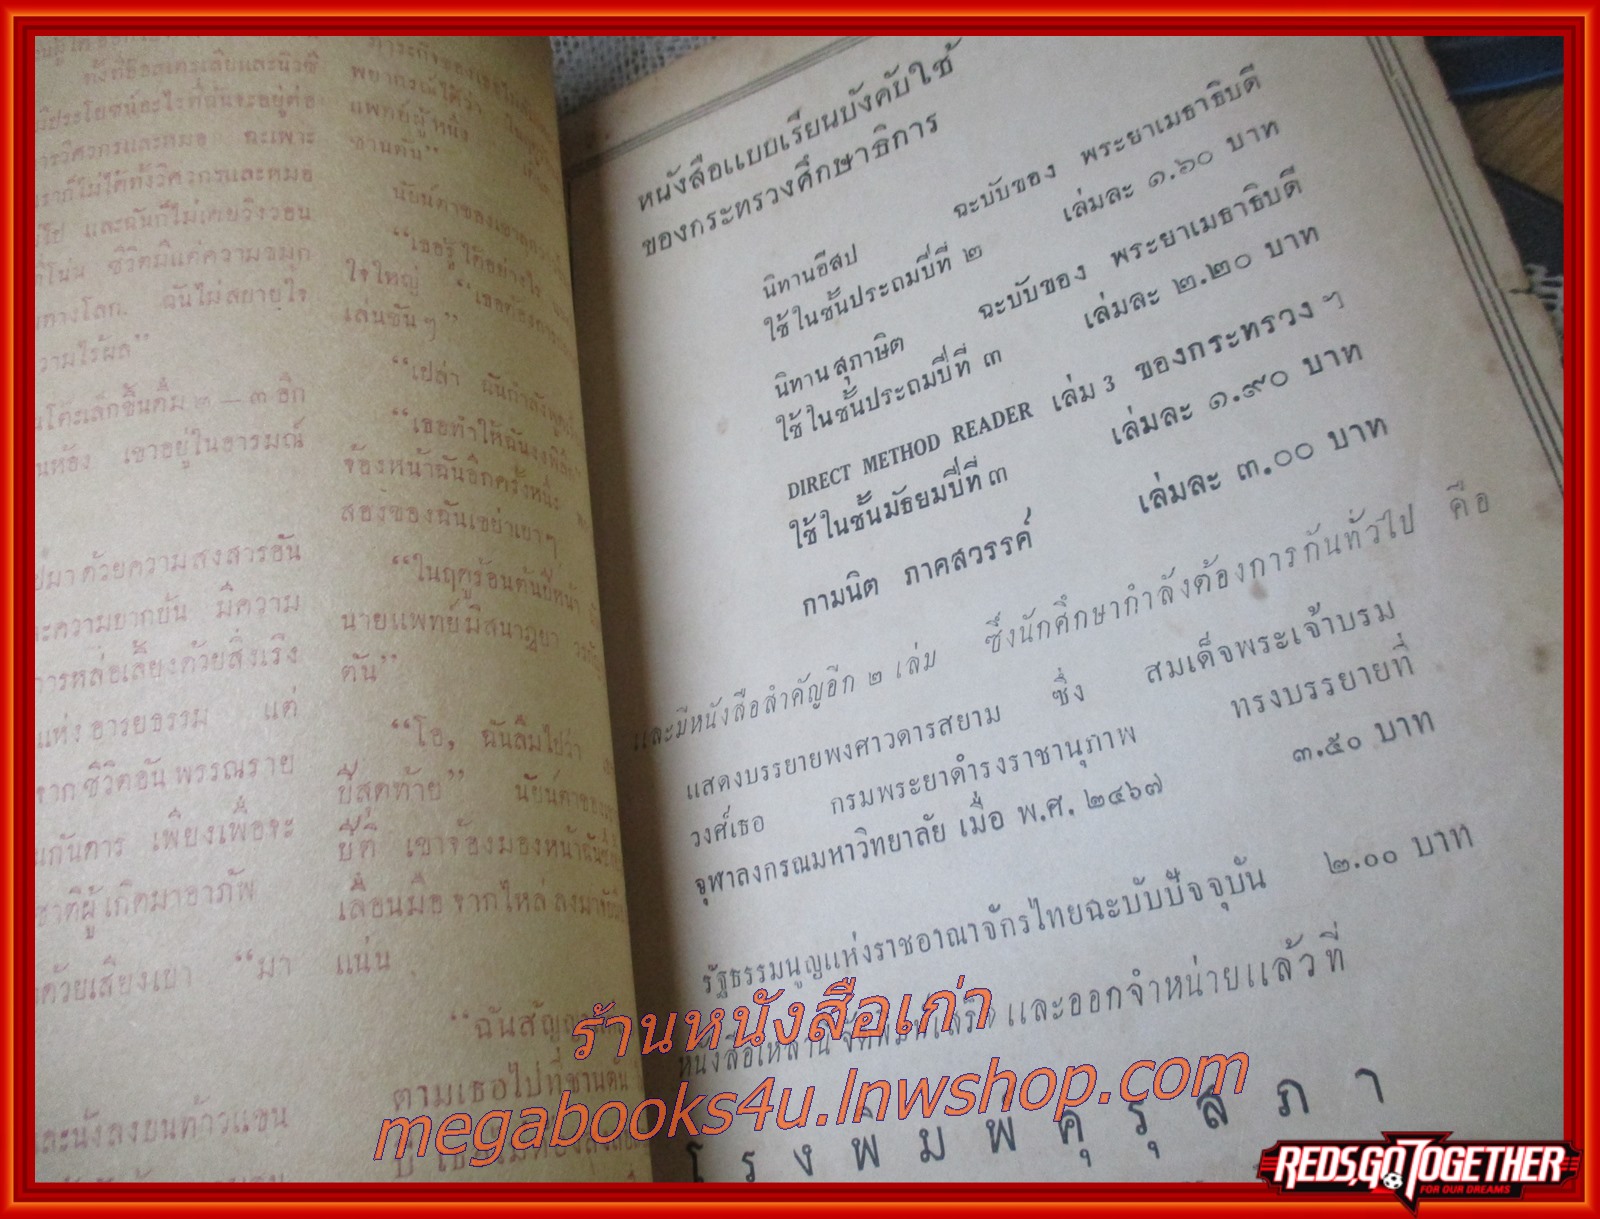 ทั้งที่ออสเตรเลียและนิวซี
มีประโยชน์อะไรที่ฉันจะอยู่ต่อ
การวิศวกรและหมอ ฉะเพาะ
เราก็ไม่ได้ทั้งวิศวกรและหมอ
ไป และฉันก็ไม่เคยวิงวอน
ชีวิตมีแต่ความขมุก
ทางโลก. ฉันไม่สบายใจ
ความไร้ผล”
โค๊ะเล็กขึ้นดื่ม ๒ — ๓ อึก
ห้อง เขาอยู่ในอารมณ์
มาด้วยความสงสารอัน
ความยากยัน มีความ
การหล่อเลี้ยงด้วยสิ่งเริง
แห่งอารยธรรม แต่
จากชีวิตอันพรรณราย
กันดาร เพียงเพื่อจะ
ชาติผู้เกิดมาอาภัพ
ด้วยเสียงเบา “มา
และนั่งลงบนท้าวแขน
ภาระกิจของเธอ
พยากรณ์ได้ว่า
แพทย์ผู้หนึ่ง
ซานตัน”
นัยน์ตาของเขา
“เธอรู้ได้อย่างไร
ใจใหญ่ “เธอต้องการ
เล่นขันๆ”
“เปล่า ฉันกำลังพูด
“เธอทำให้ฉันงง
จ้องหน้าฉันอีกครั้งหนึ่ง
สองของฉันเขย่าเบาๆ
“ในฤดูร้อนต้นปีหน้า
นายแพทย์มีสนาฎยา
ตัน”
“โอ, ฉันลืมไปว่า
ปีสุดท้าย” นัยน์ตาของ
ปีติ เขาจ้องมองหน้าฉัน
เลื่อนมือจากไหล่ลงมา
แน่น
“ฉันสัญญา
ตามเธอไปที่ซานตัน
หนังสือแบบเรียนบังคับใช้
ของกระทรวงศึกษาธิการ
นิทานอีสป ฉะบับของ พระยาเมธาธิบดี
ใช้ในชั้นประถมปีที่ ๒ เล่มละ ๑.๖๐ บาท
นิทานสุภาษิต ฉะบับของ พระยาเมธาธิบดี
ใช้ในชั้นประถมปีที่ ๓ เล่มละ ๒.๒๐ บาท
DIRECT METHOD READER เล่ม 3 ของกระทรวง ฯ
ใช้ในชั้นมัธยมปีที่ ๓ เล่มละ ๑.๙๐ บาท
กามนิต ภาคสวรรค์ เล่มละ ๓.๐๐ บาท
และมีหนังสือสำคัญอีก ๒ เล่ม ซึ่งนักศึกษากำลังต้องการกันทั่วไป คือ
แสดงบรรยายพงศาวดารสยาม ซึ่ง สมเด็จพระเจ้าบรม
วงศ์เธอ กรมพระยาดำรงราชานุภาพ ทรงบรรยายที่
จุฬาลงกรณมหาวิทยาลัย เมื่อ พ.ศ. ๒๔๖๗ ๓.๕๐ บาท
รัฐธรรมนูญแห่งราชอาณาจักรไทยฉะบับปัจจุบัน ๒.๐๐ บาท
หนังสือเหล่านี้ จัดพิมพ์เสร็จ และออกจำหน่ายแล้วที่
โรงพิมพ์คุรุสภา
ร้านหนังสือเก่า
megabooks4u.lnwshop.com
REDS,GO TOGETHER
FOR OUR DREAMS